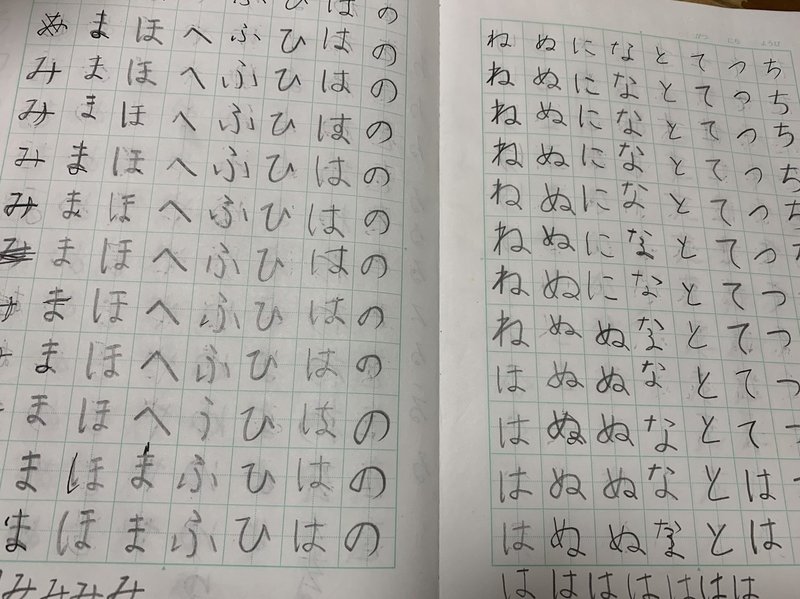 ちちちちち
つつつつつつつつつ
ててててててててててはは
とととととととととととと
なななななななななななな
にににににににぬぬぬぬぬ
ぬぬぬぬぬぬぬぬぬぬぬぬ
ねねねねねねねねはははは
ははははははは
のののののののののののの
はははははははははははは
ひひひひひひひひひひひひ
ふふふふふふふふうふふ
へへへへへへへへへまま
ほほほほほほほほほほほ
ままままままままままま
みみみみみ
みみみみ